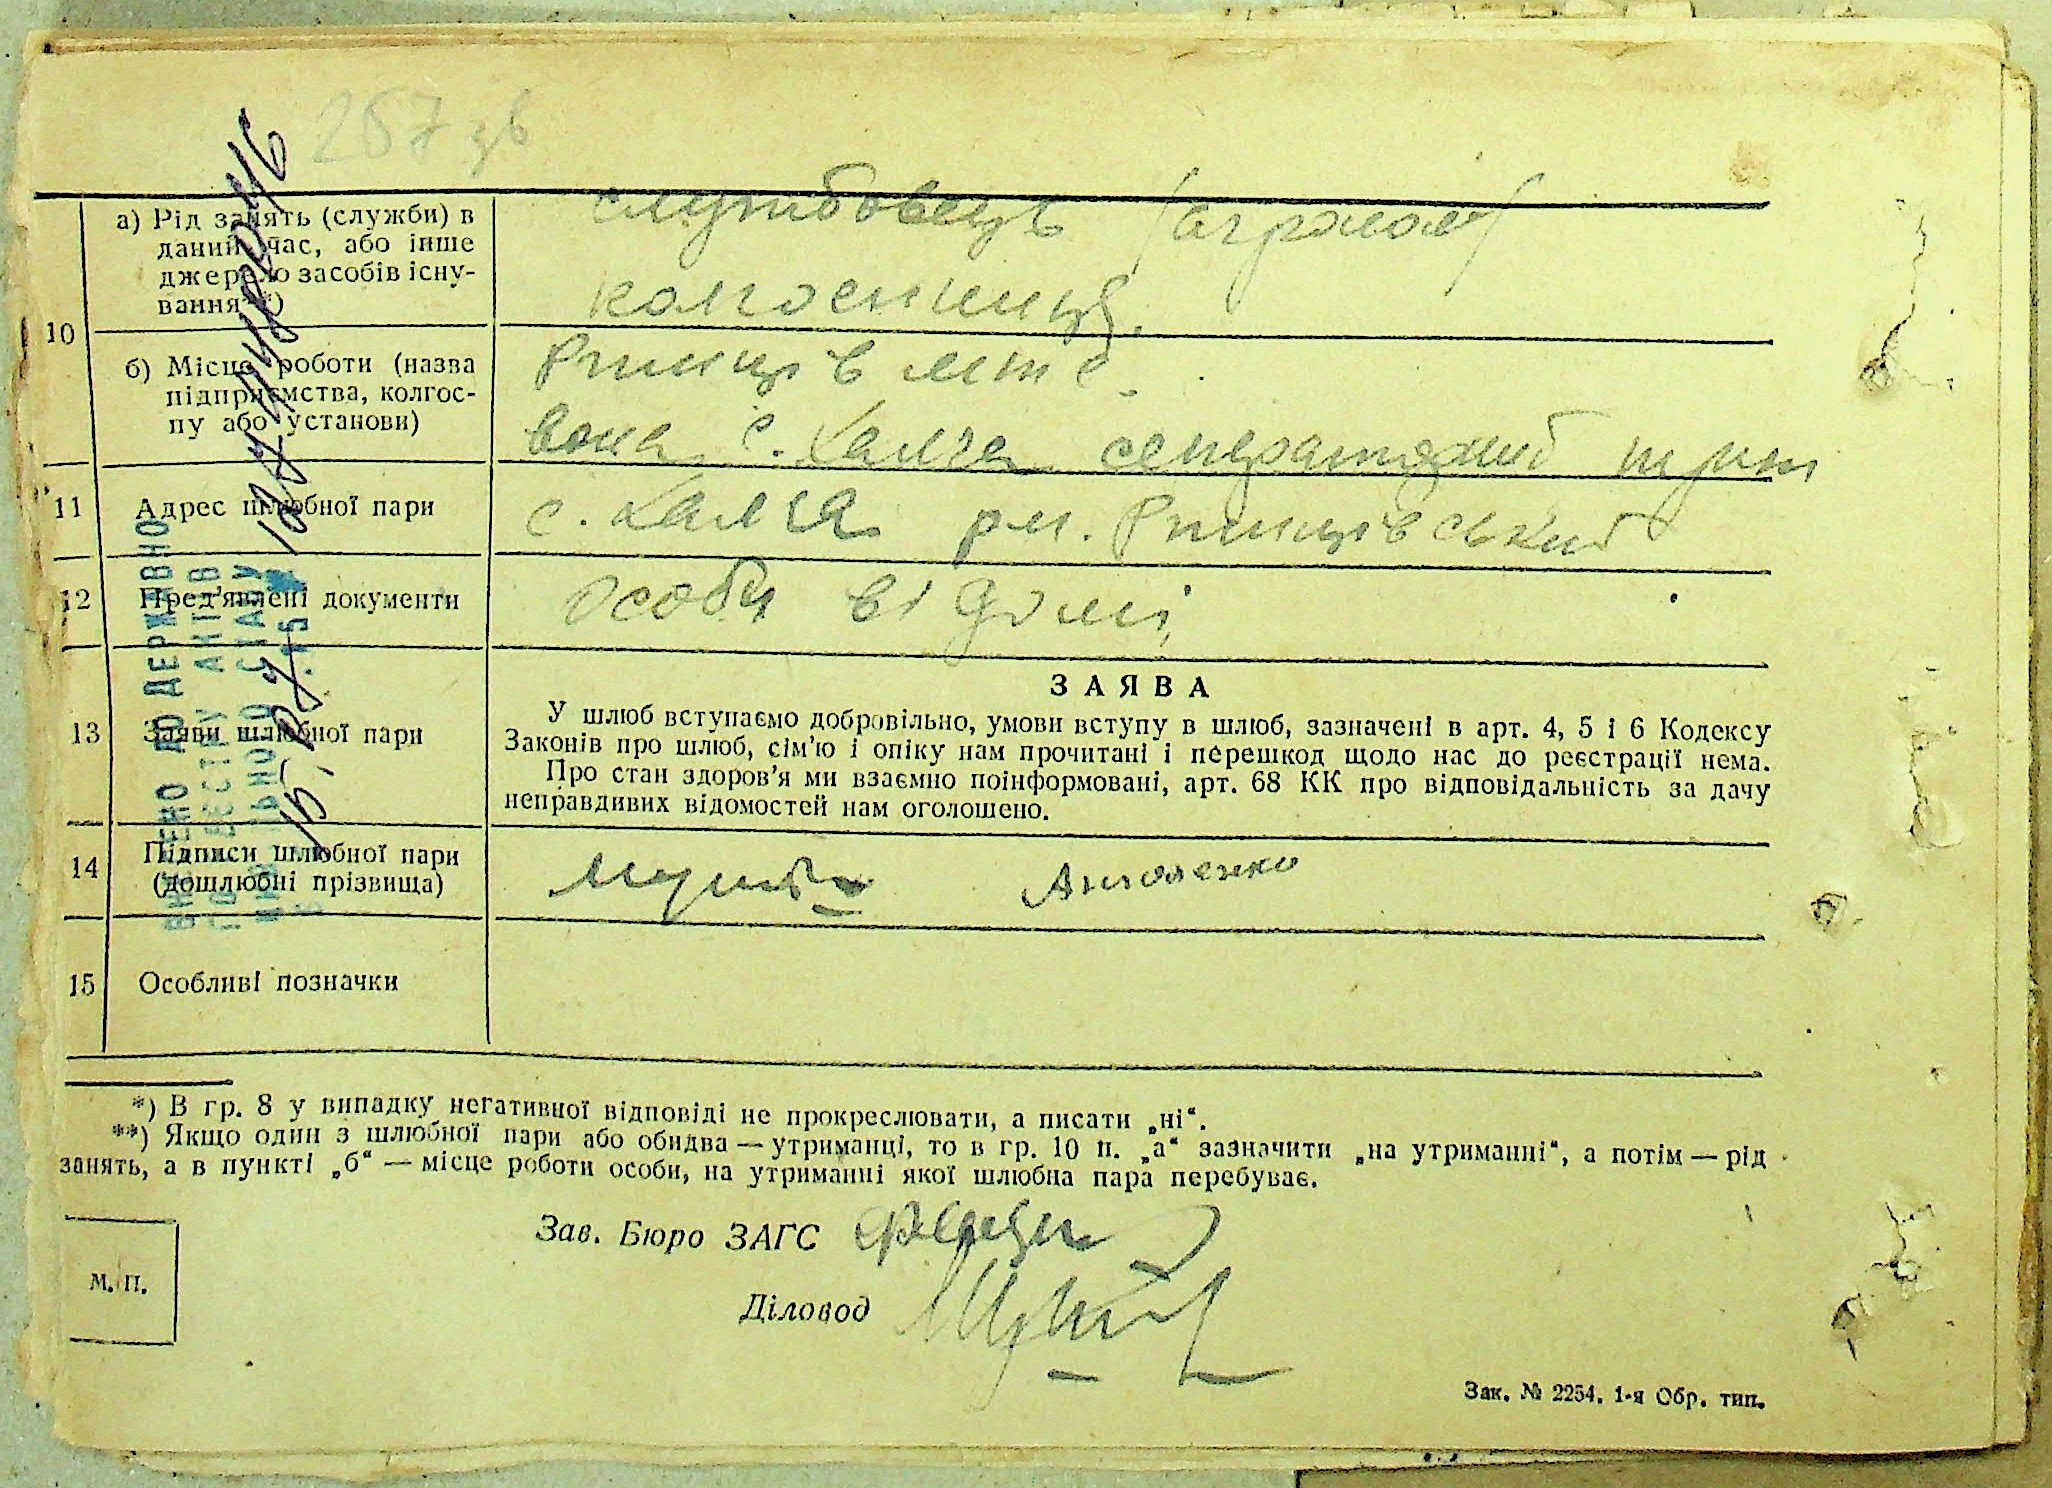 287 зв
10
а) Рід занять (служби) в
даний час, або інше
джерело засобів існу-
вання**)
службовець /агроном/
колгоспниця.
б) Місце роботи (назва
підприємства, колгос-
пу або установи)
Ріпиців мтс.
вона с. Халча сепараторний пункт
11
Адрес шлюбної пари
с. Халча
12
Пред'явлені документи
особи відомі
13
Заяви шлюбної пари
ЗАЯВА
У шлюб вступаємо добровільно, умови вступу в шлюб, зазначені в арт. 4, 5 і 6 Кодексу
Законів про шлюб, сім'ю і опіку нам прочитані і перешкод щодо нас до реєстрації нема.
Про стан здоров'я ми взаємно поінформовані, арт. 68 КК про відповідальність за дачу
неправдивих відомостей нам оголошено.
14
Підписи шлюбної пари
(дошлюбні прізвища)
15
Особливі позначки
ВНЕСЕНО ДО ДЕРЖАВНО
ГО РЕЄСТРУ АКТІВ
ЦИВІЛЬНОГО СТАНУ
*) В гр. 8 у випадку негативної відповіді не прокреслювати, а писати „ні“.
**) Якщо один з шлюбної пари або обидва — утриманці, то в гр. 10 п. „а“ зазначити „на утриманні“, а потім — рід
занять, а в пункті „б“ — місце роботи особи, на утриманні якої шлюбна пара перебуває.
Зав. Бюро ЗАГС
Діловод
М. П.
Зак. № 2254. 1-я Обр. тип.